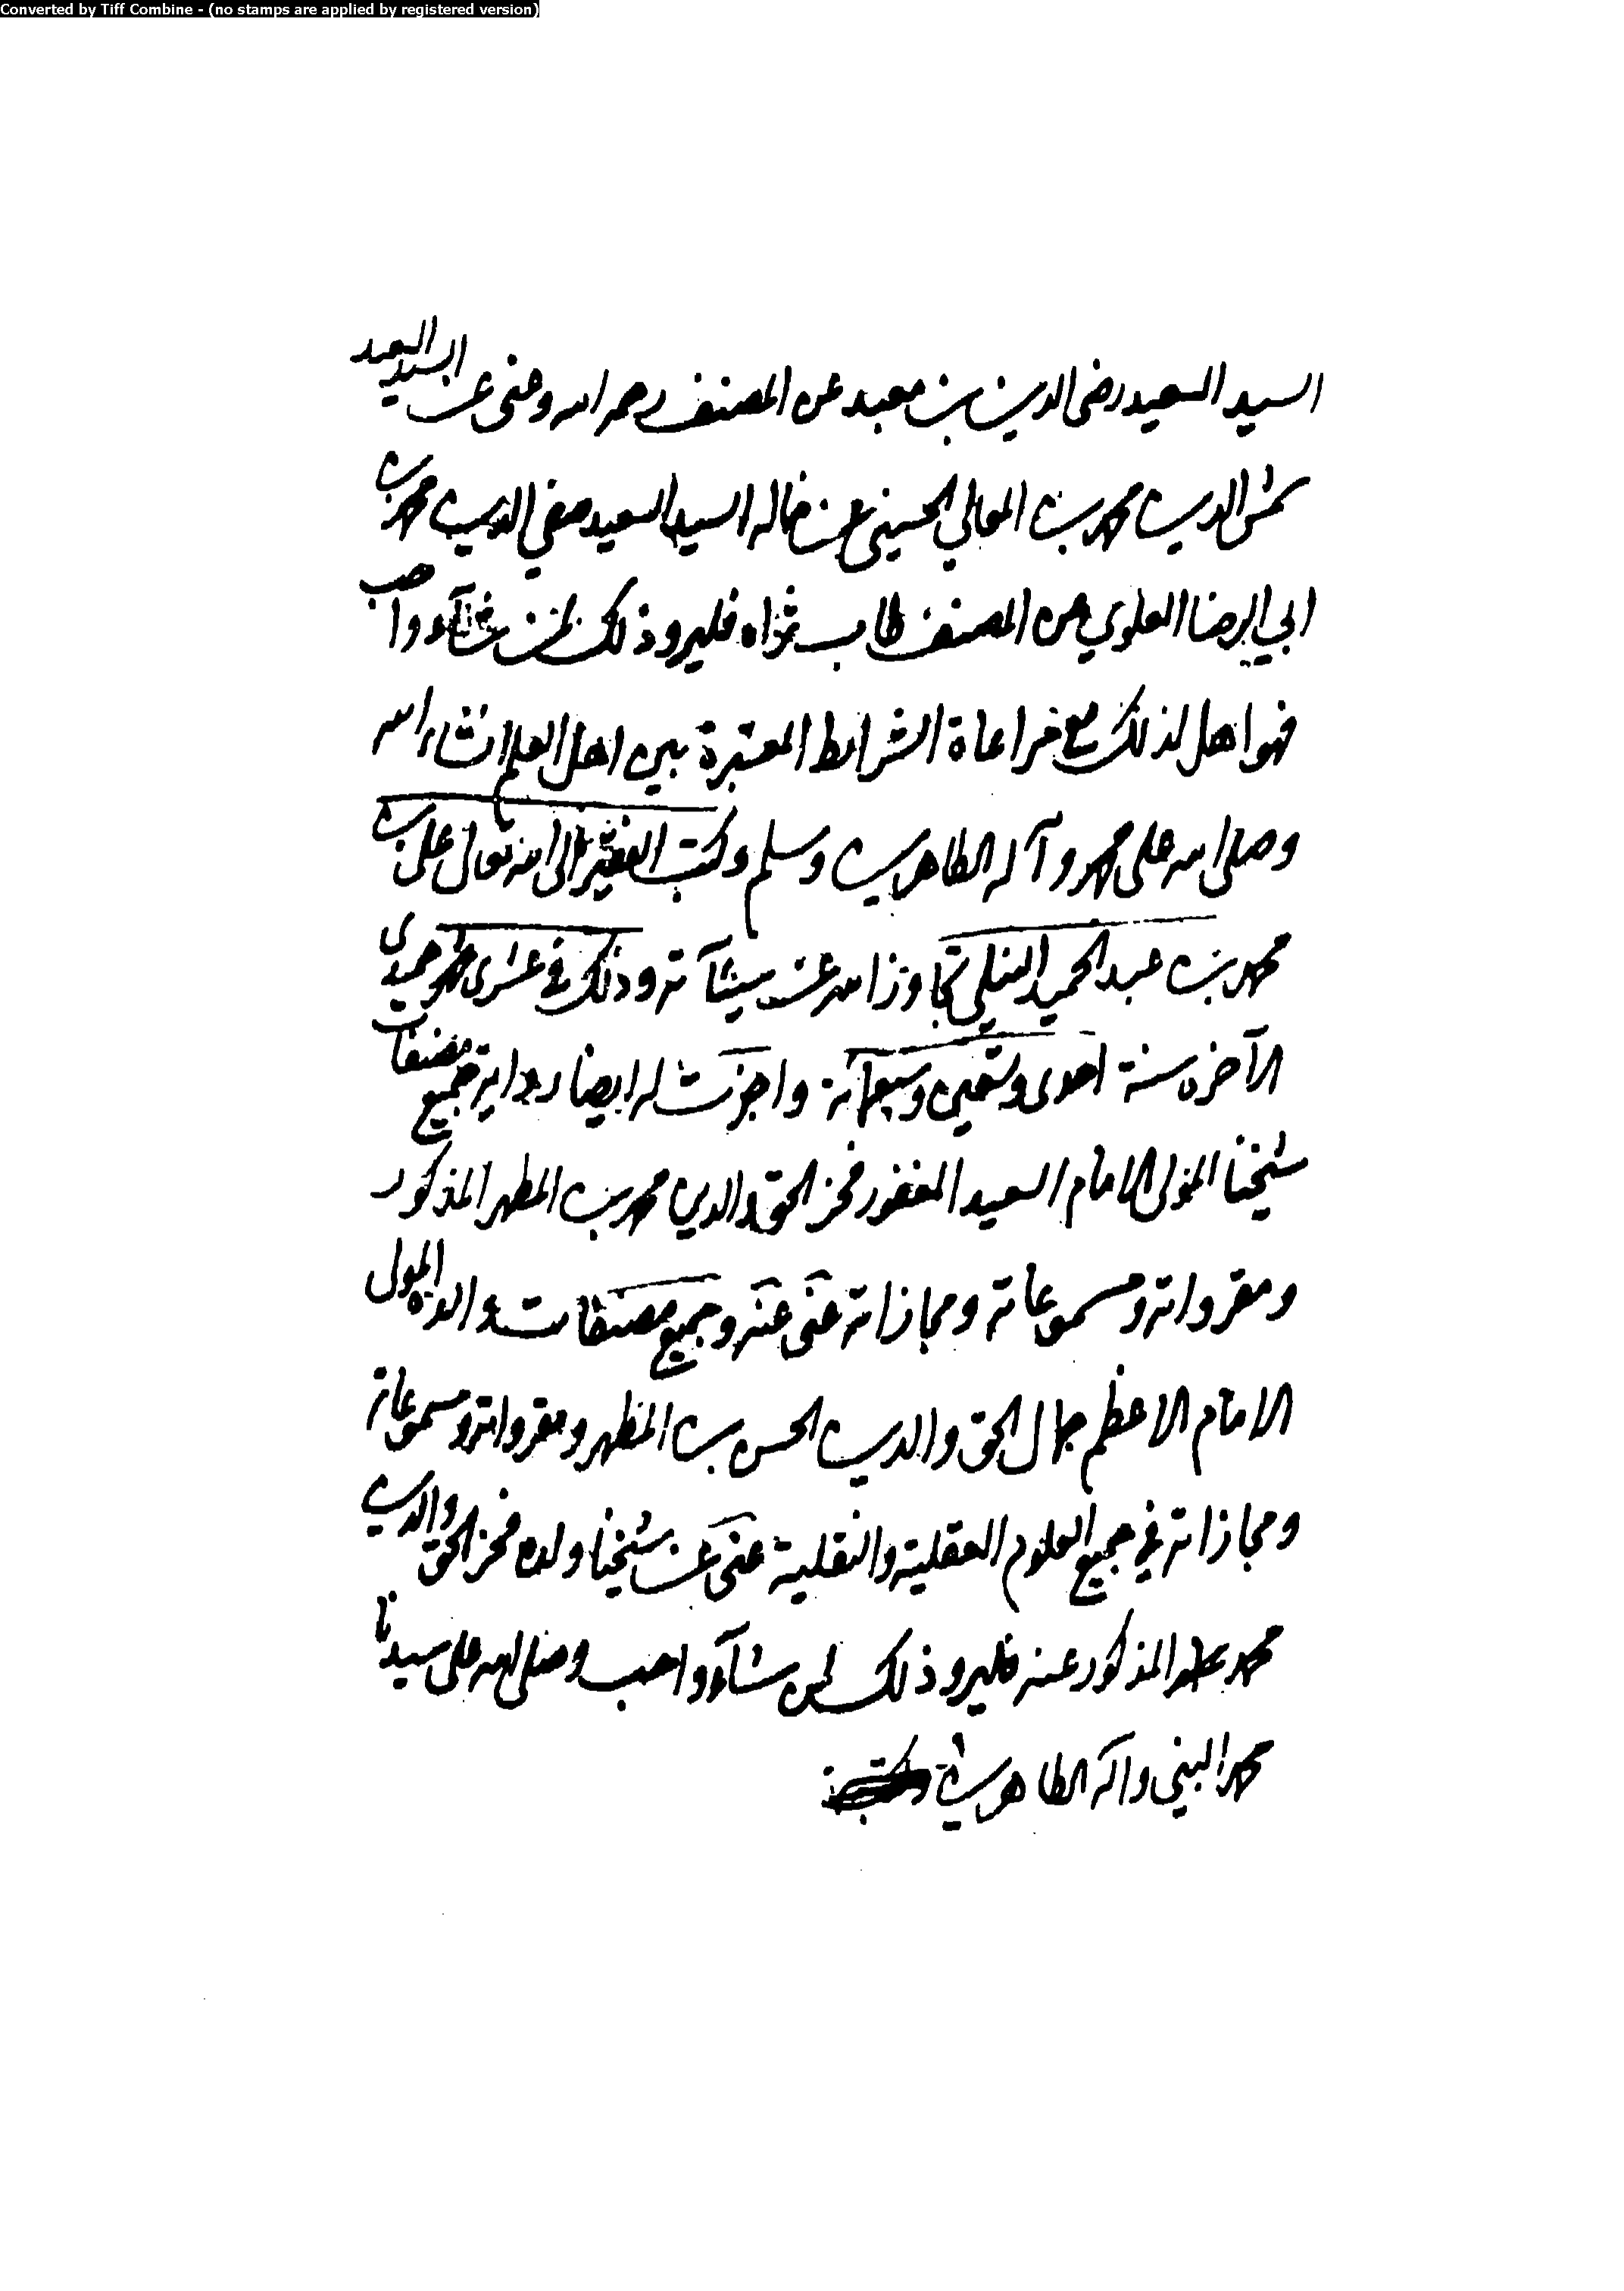 Converted by Tiff Combine - (no stamps are applied by registered version)
السيد السعيد رضى الدين بن معبد عن المصنف رحمه الله وعنى عن السيد السعيد
شمس الدين محمد بن المعالي الحسيني عن خاله السيد السعيد صفي الدين محمد بن
ابي الرضا العلوي عن المصنف طاب ثراه فليرو ذلك لمن شآء واحب
فهو اهل لذلك مع مراعاة الشرايط المعتبرة بين اهل العلم انشاء الله
وصلى الله على محمد وآله الطاهرين وسلم وكتب الفقير الى الله تعالى على بن
محمد بن عبد الحميد النيلي تجاوز الله عن سيئآته وذلك في عشرى جميدى
الآخرة سنة احدى وتسعين وسبعمآئة واجزت له ايضا رواية جميع مصنفات
شيخنا المولى الامام السعيد المغفور فخر الحق والدين محمد بن المطهر المذكور
ومقرواته ومسموعاته ومجازاته عنى عنه وجميع مصنفات والده المولى
الامام الاعظم جمال الحق والدين الحسن بن المطهر ومقرواته ومسموعاته
ومجازاته في جميع العلوم العقلية والنقلية عنى عن شيخنا ولده فخر الحق والدين
محمد المذكور عنه فليرو ذلك لمن شآء واحب وصلى الله على سيدنا
محمد النبي وآله الطاهرين